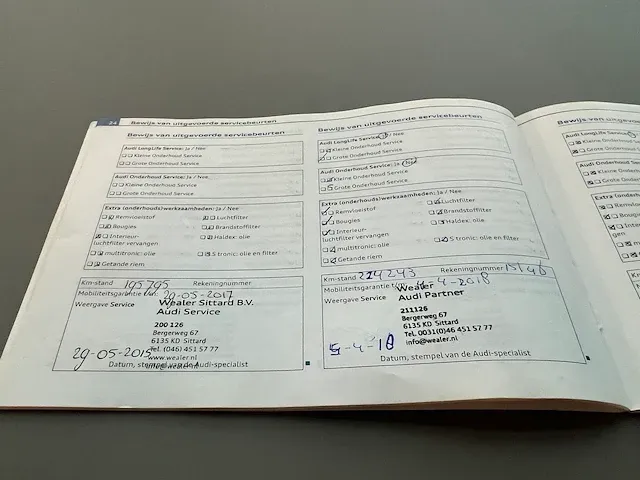 34 Bewijs van uitgevoerde servicebeurten
Bewijs van uitgevoerde servicebeurten
Audi LongLife Service: Ja / Nee
Kleine Onderhoud Service
Grote Onderhoud Service
Audi Onderhoud Service: Ja / Nee
Kleine Onderhoud Service
Grote Onderhoud Service
Extra (onderhouds)werkzaamheden: Ja / Nee
Remvloeistof Luchtfilter
Bougies Brandstoffilter
Interieur- Haldex: olie
luchtfilter vervangen
multitronic: olie S tronic: olie en filter
Getande riem
Km-stand 195795 Rekeningnummer
Mobiliteitsgarantie t/m: 29-05-2017
Weergave Service
Wealer Sittard B.V.
Audi Service
200 126
Bergerweg 67
6135 KD Sittard
Tel. (046) 451 57 77
www.wealer.nl
info@wealer.nl
29-05-2015
Datum, stempel van de Audi-specialist
Bewijs van uitgevoerde servicebeurten
Bewijs van uitgevoerde servicebeurten
Audi LongLife Service: Ja / Nee
Kleine Onderhoud Service
Grote Onderhoud Service
Audi Onderhoud Service: Ja / Nee
Kleine Onderhoud Service
Grote Onderhoud Service
Extra (onderhouds)werkzaamheden: Ja / Nee
Remvloeistof Luchtfilter
Bougies Brandstoffilter
Interieur- Haldex: olie
luchtfilter vervangen
multitronic: olie S tronic: olie en filter
Getande riem
Km-stand 224243 Rekeningnummer
Mobiliteitsgarantie t/m: 4-2018
Weergave Service
Wealer
Audi Partner
211126
Bergerweg 67
6135 KD Sittard
Tel. 0031(0)46 451 57 77
info@wealer.nl
Datum, stempel van de Audi-specialist
Bewijs van uitgevoerde
Audi LongLife Service:
Kleine Onderhoud
Grote Onderhoud
Audi Onderhoud
Kleine
Grote
Extra
Remvloei
Bougies
Interieu
Km-stand
Weerg